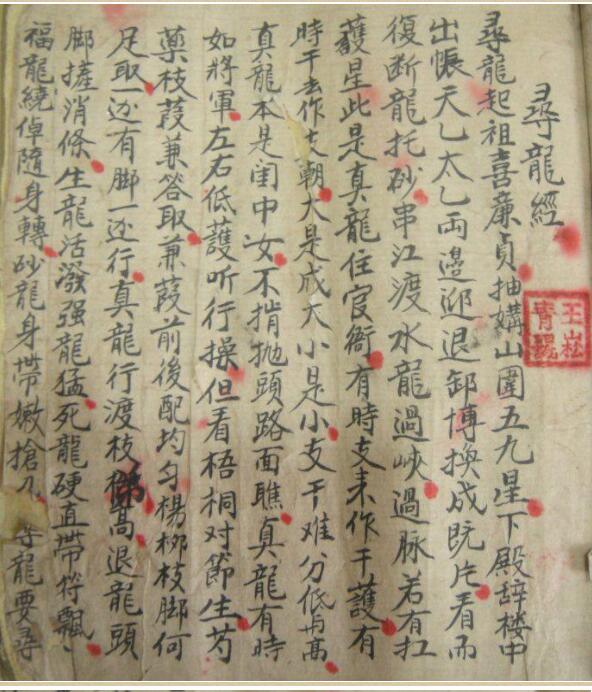 尋龍經
尋龍起祖喜廉貞抽媾山圍五九星下殿辞楼中
出帳天乙太乙両邊迎退卸博換成既片看而
復断龍托砂串江渡水龍過峽過脉若有扛
護星此是真龍住官衙有時支来作干護有
時干去作支朝大是成大小是小支干难分低与高
真龍本是闺中女不揹抛頭路面瞧真龍有時
如將軍左右低護听行操但看梧桐对節生芍
藥枝葭兼答取蒹葭前後配均匀楊柳枝脚何
足取一边有脚一边行真龍行渡枝梯高退龍頭
脚摧消條生龍活潑强龍猛死龍硬直帶符飄
福龍繞倬隨身轉砂龍身帶嫩搶刀尋龍要尋
王崧
青琨